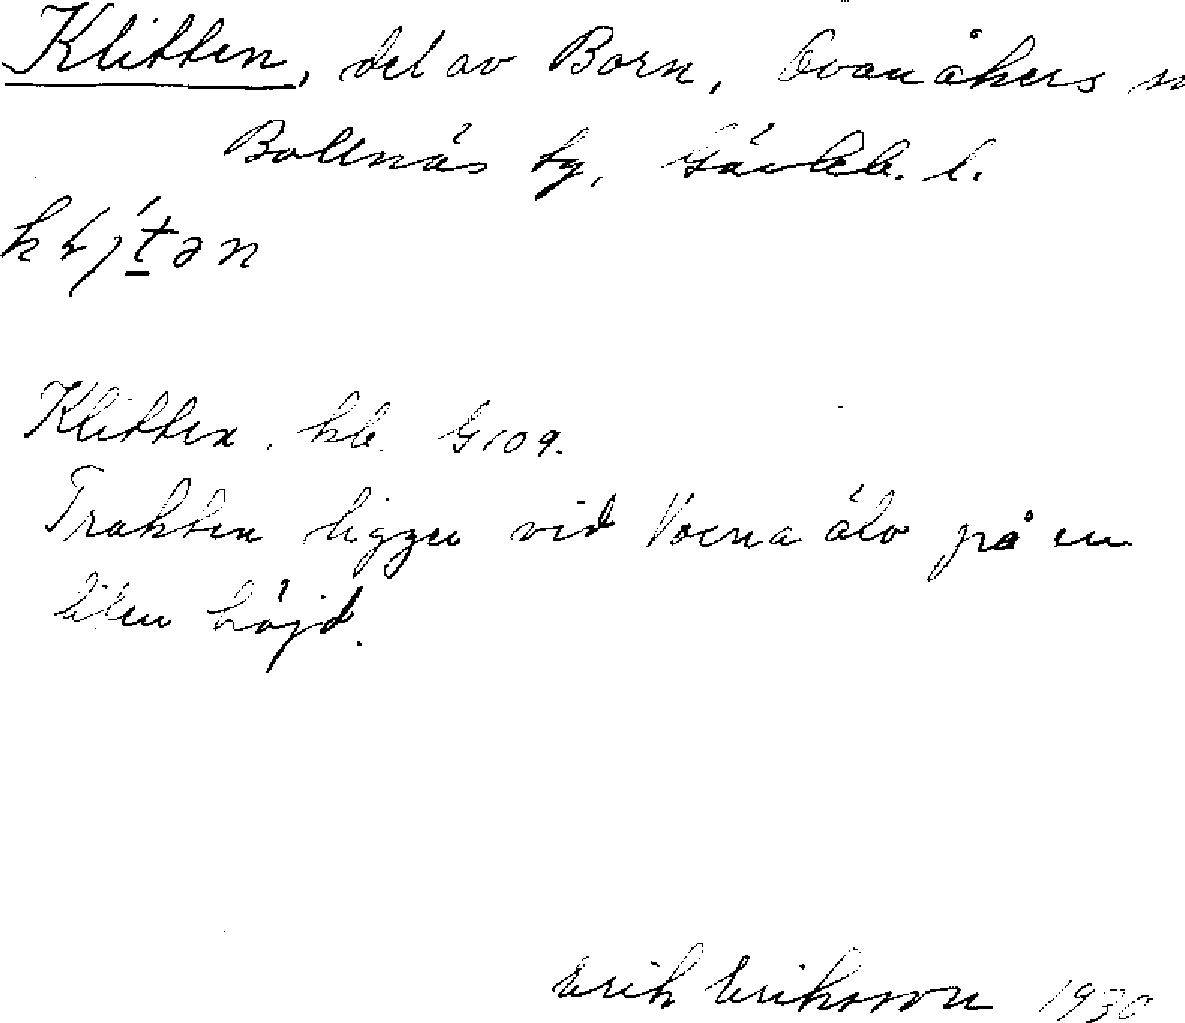 Klitten, del av Born, Ovanåkers
Bollnäs tg, Gävleb. l.
Klitten. kb. G 109.
Trakten ligger vid Voxna älv på en
liten höjd.
Erik Eriksson 1930